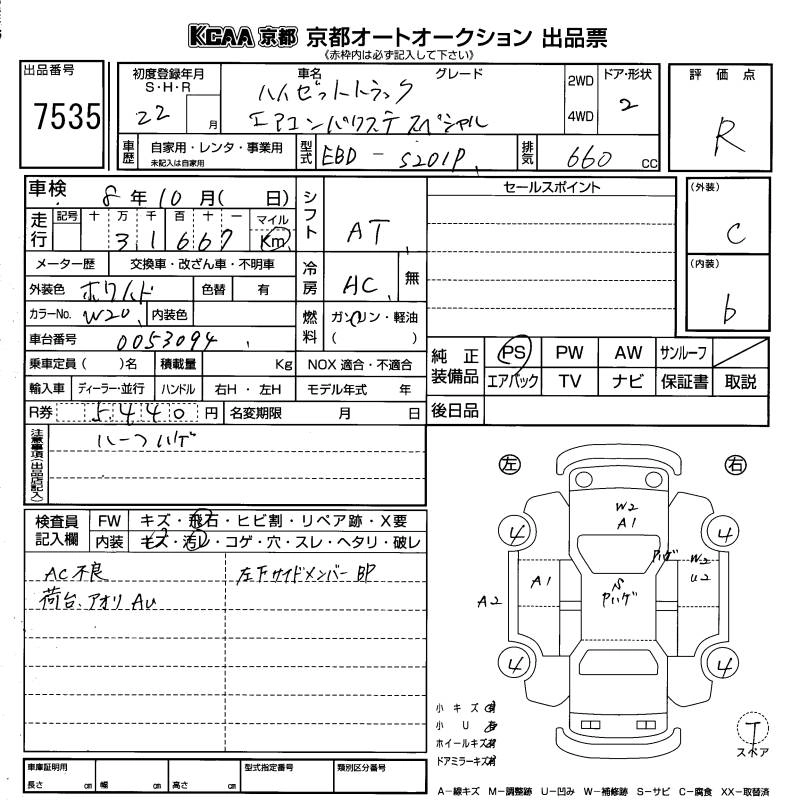 KCAA 京都 京都オートオークション 出品票
《赤枠内は必ず記入して下さい》
出品番号
7535
初度登録年月
S・H・R
22 月
車名 グレード
ハイゼットトラック
エアコンパワステ スペシャル
2WD
4WD
ドア・形状
2
評価点
R
車歴
自家用・レンタ・事業用
未記入は自家用
型式
EBD-S201P
排気
660 cc
車検 8年10月( 日)
シフト
AT
セールスポイント
(外装)
C
走行
記号 十 万 千 百 十 一 マイル
3 1 6 6 7 Km
メーター歴 交換車・改ざん車・不明車
冷房
AC 無
(内装)
b
外装色 ホワイト 色替 有
カラーNo. W20 内装色
燃料
ガソリン・軽油
( )
車台番号 0053094
乗車定員( )名 積載量 Kg NOX 適合・不適合
純正装備品
PS PW AW サンルーフ
エアバック TV ナビ 保証書 取説
輸入車 ディーラー・並行 ハンドル 右H・左H モデル年式 年
R券 5440円 名変期限 月 日
後日品
注意事項(出品店記入)
ハーフハゲ
左 右
検査員記入欄
FW キズ・飛石・ヒビ割・リペア跡・X要
内装 キズ・汚レ・コゲ・穴・スレ・ヘタリ・破レ
AC不良
左下サイドメンバーBP
荷台、アオリ AU
W2
A1
4 4
Pハゲ
W2
U2
A1
A2
S
Pハゲ
4 4
小キズ有
小U有
ホイールキズ有
ドアミラーキズ有
T
スペア
車庫証明用
長さ cm 幅 cm 高さ cm
型式指定番号 類別区分番号
A-線キズ M-調整跡 U-凹み W-補修跡 S-サビ C-腐食 XX-取替済